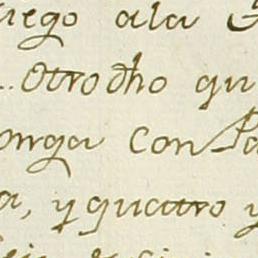 uego ala
Otro dho qu
onga con Pa
a, y quatro y